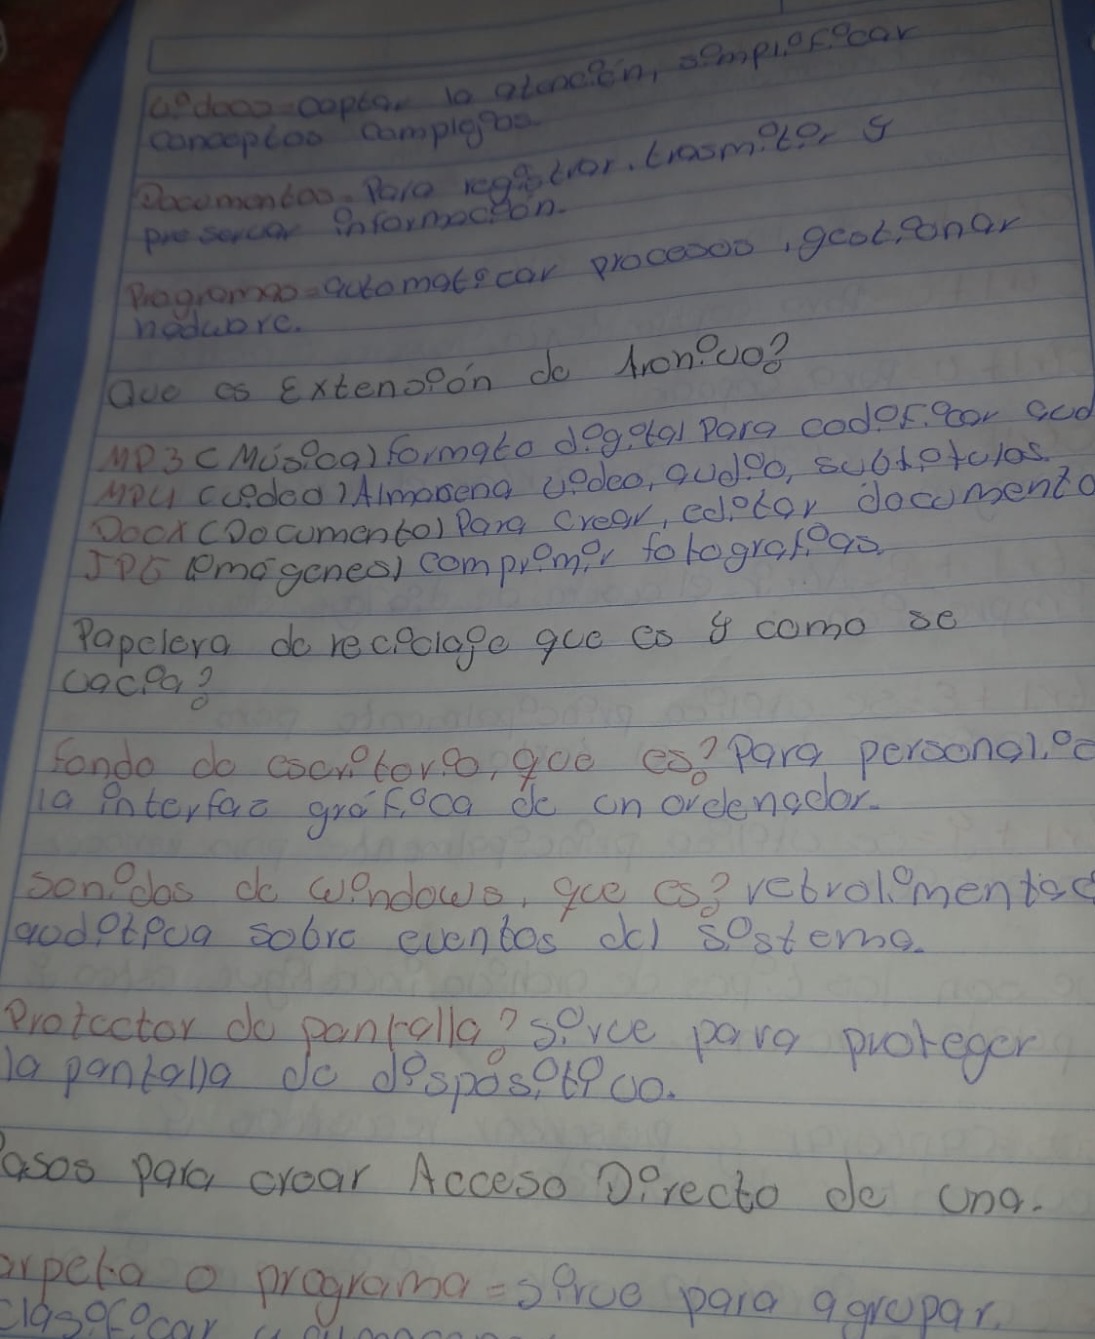 Videos = captar la atención, simplificar
conceptos complejos
Documentos = Para registrar, trasmitir y
preservar información.
Programas = automatizar procesos, gestionar
haduare.
Que es Extensión de Archivo?
MP3 (Música) formato digital para codificar aud
MPU (video) Almacena video, audio, subtitulos
Docx (Documento) Para crear, editar documento
JPG (imágenes) comprimir fotografias
Papelera de reciclaje que es y como se
vacia?
fondo de escritorio, que es? Para personaliz
la interfaz gráfica de un ordenador.
Sonidos de windows, que es? retrolimentac
auditiva sobre eventos del sistema.
Protector de pantalla? sirve para proteger
la pantalla de dispósitivo.
Pasos para crear Acceso Directo de una.
arpeta o programa = sirve para agrupar.
clasificar y